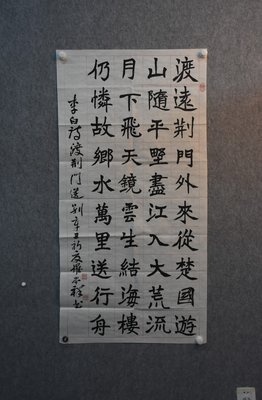 渡遠荆門外來從楚國遊
山隨平野盡江入大荒流
月下飛天鏡雲生結海樓
仍憐故鄉水萬里送行舟
李白詩渡荆門送别辛丑初夏